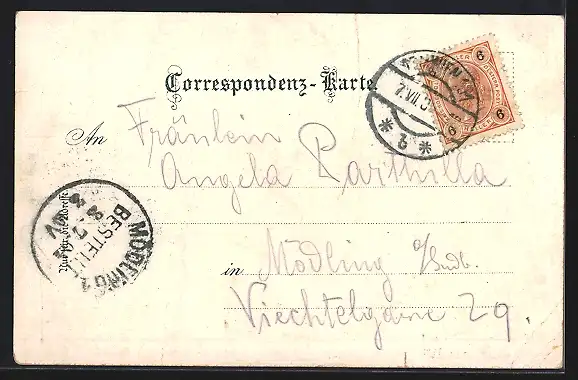 Correspondenz-Karte.
6
6
6
WIEN
7.VII.
* b *
An Fräulein
Angela Parthilla
Nur für die Adresse
MÖDLING 1
BESTELLT
8.7
in Mödling b/Südb.
Viechtelgasse 29.